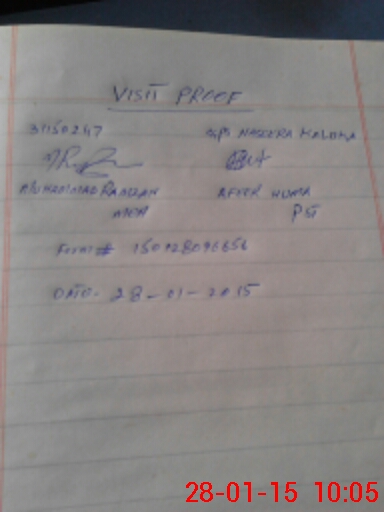 VISIT PROOF
31150247
GGPS NASEERA KALOKA
MUHAMMAD RAMZAN
MEA
AFTER HUMA
PST
Form# 150128096656
DATE- 28-01-2015
28-01-15 10:05